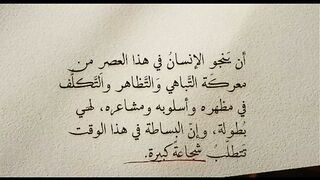 أن يَنجو الإنسانُ في هذا العصر من
معركة التَّباهي والتَّظاهر والتَّكلُّف
في مظهره وأسلوبه ومشاعره، لهي
بُطولة، وإنّ البساطة في هذا الوقت
تتطلَّبُ شجاعةً كبيرة.